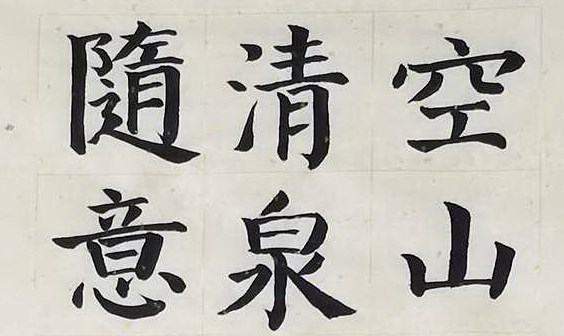 空山
清泉
隨意